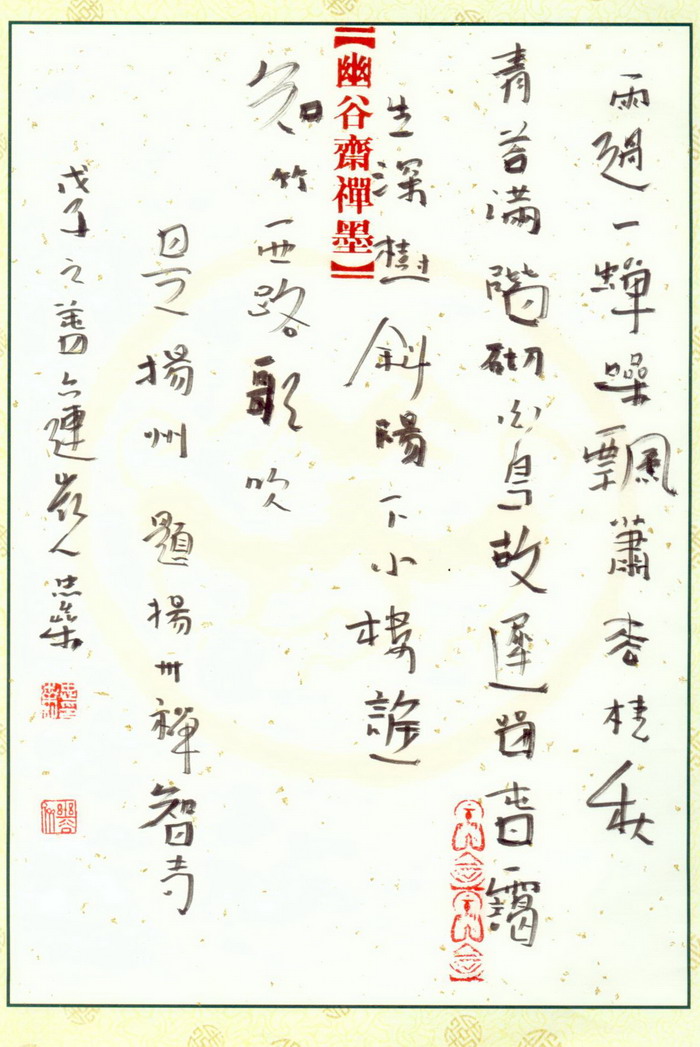 雨過一蟬噪飄蕭枩桂秋
青苔滿階砌白鳥故遲留暮靄
生深樹斜陽下小樓誰
【幽谷齋禪墨】
知竹西路歌吹
是揚州 題揚州禪智寺
戊子之